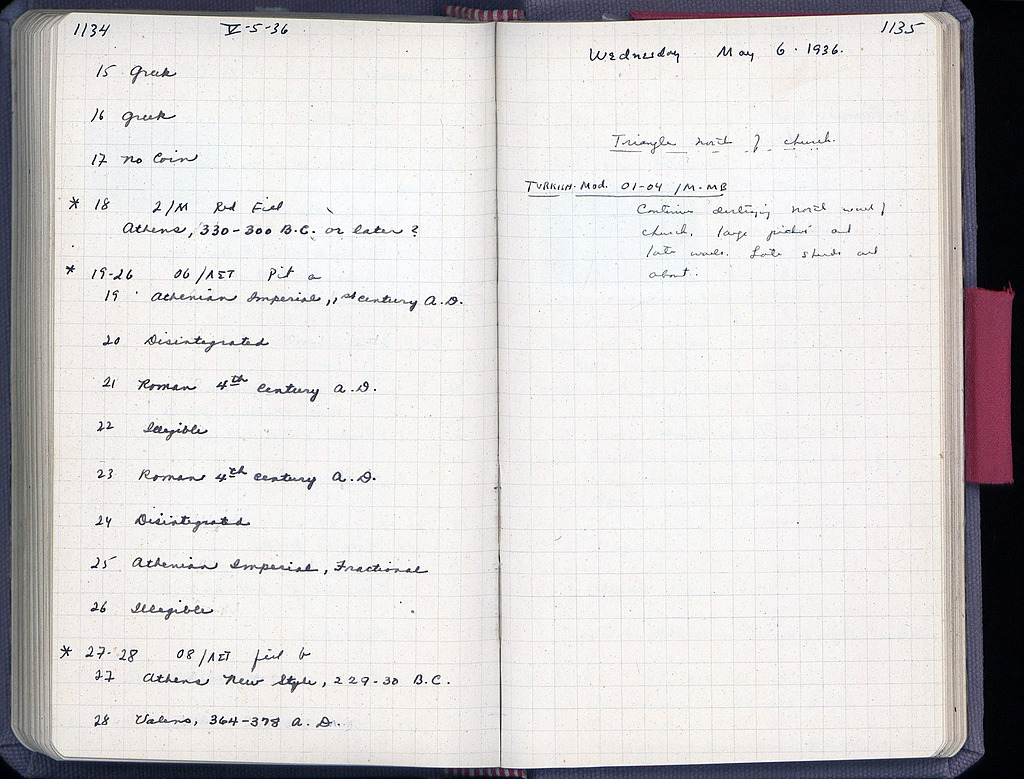 1134 V-5-36
15 Greek
16 Greek
17 No Coin
* 18 2/M Red Fill
Athens, 330-300 B.C. or later?
* 19-26 06/ΛΣΤ Pit a
19 Athenian Imperial, 1st century A.D.
20 Disintegrated
21 Roman 4th century A.D.
22 Illegible
23 Roman 4th century A.D.
24 Disintegrated
25 Athenian Imperial, Fractional
26 Illegible
* 27-28 08/ΛΣΤ fill b
27 Athens New Style, 229-30 B.C.
28 Valens, 364-378 A.D.
1135
Wednesday May 6. 1936.
Triangle north of church.
TURKISH-Mod. 01-04/M-MB
Continue destroying north wall of
church, large pithoi and
late walls. Late sherds all
about.